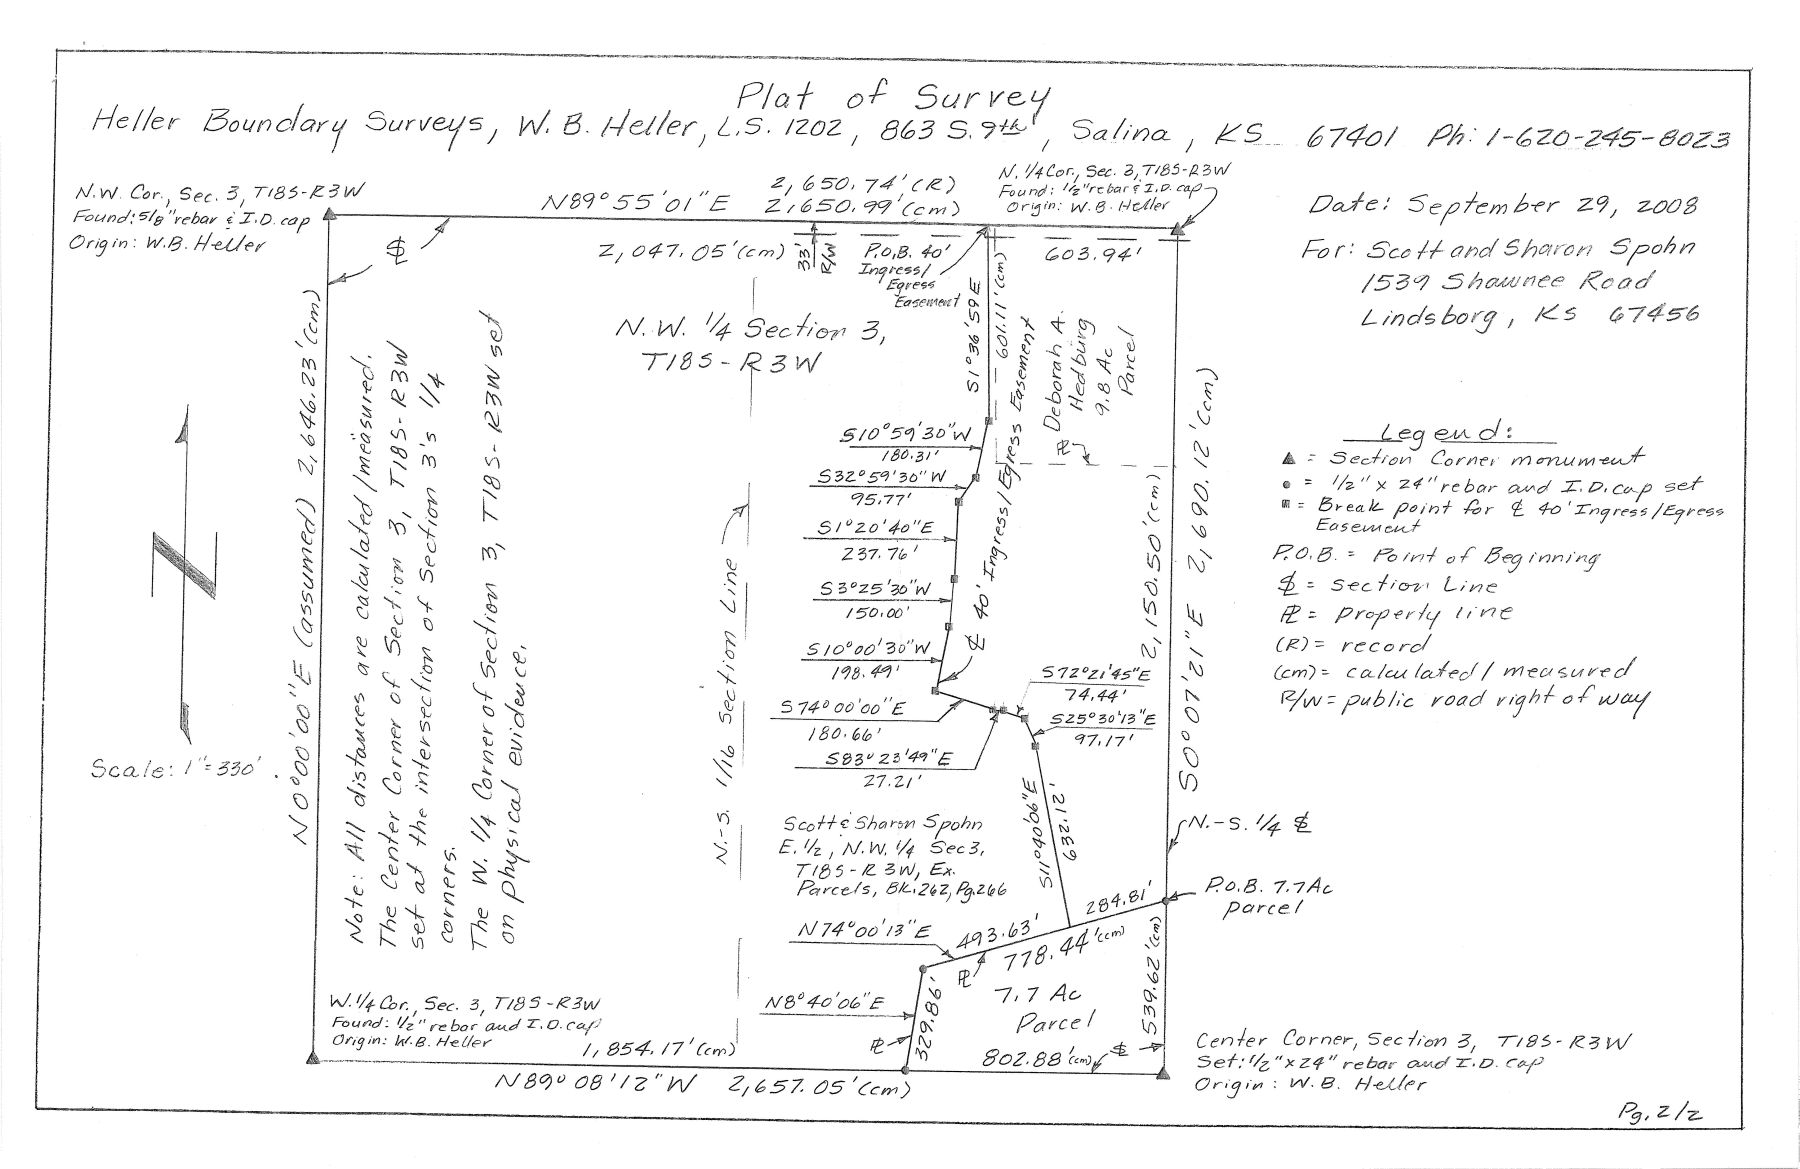 Plat of Survey
Heller Boundary Surveys, W. B. Heller, L.S. 1202, 863 S. 9th, Salina, KS 67401 Ph: 1-620-245-8023
N.W. Cor., Sec. 3, T18S-R3W
Found: 5/8" rebar & I.D. cap
Origin: W.B. Heller
N89°55'01"E
2,650.74' (R)
2,650.99' (cm)
N. 1/4 Cor., Sec. 3, T18S-R3W
Found: 1/2" rebar & I.D. cap
Origin: W.B. Heller
Date: September 29, 2008
For: Scott and Sharon Spohn
1539 Shawnee Road
Lindsborg, KS 67456
2,047.05' (cm)
33'
R/W
P.O.B. 40'
Ingress/
Egress
Easement
603.94'
N.W. 1/4 Section 3,
T18S-R3W
S1°36'59E
601.11' (cm)
Deborah A.
Hedburg
9.8 Ac
Parcel
℄ 40' Ingress/Egress Easement
S10°59'30"W
180.31'
S32°59'30"W
95.77'
S1°20'40"E
237.76'
S3°25'30"W
150.00'
S10°00'30"W
198.49'
S74°00'00"E
180.66'
S83°23'49"E
27.21'
S72°21'45"E
74.44'
S25°30'13"E
97.17'
S11°40'06"E
632.12'
2,150.50' (cm)
S0°07'21"E 2,690.12' (cm)
Legend:
▲ = Section Corner monument
● = 1/2" x 24" rebar and I.D. cap set
■ = Break point for ℄ 40' Ingress/Egress
Easement
P.O.B. = Point of Beginning
SL = section Line
PL = property line
(R) = record
(cm) = calculated/measured
R/W = public road right of way
N0°00'00"E (assumed) 2,646.23' (cm)
Note: All distances are calculated/measured.
The Center Corner of Section 3, T18S-R3W
set at the intersection of Section 3's 1/4
corners.
The W. 1/4 Corner of Section 3, T18S-R3W set
on physical evidence.
Scale: 1"=330'
N.-S. 1/16 Section Line
Scott & Sharon Spohn
E. 1/2, N.W. 1/4 Sec 3,
T18S-R3W, Ex.
Parcels, Bk. 262, Pg. 266
N.-S. 1/4 SL
P.O.B. 7.7 Ac
parcel
284.81'
493.63'
778.44' (cm)
N74°00'13"E
PL
N8°40'06"E
329.86'
PL
7.7 Ac
Parcel
539.62' (cm)
802.88' (cm)
SL
W. 1/4 Cor., Sec. 3, T18S-R3W
Found: 1/2" rebar and I.D. cap
Origin: W.B. Heller
1,854.17' (cm)
N89°08'12"W 2,657.05' (cm)
Center Corner, Section 3, T18S-R3W
Set: 1/2" x 24" rebar and I.D. cap
Origin: W.B. Heller
Pg. 2/2